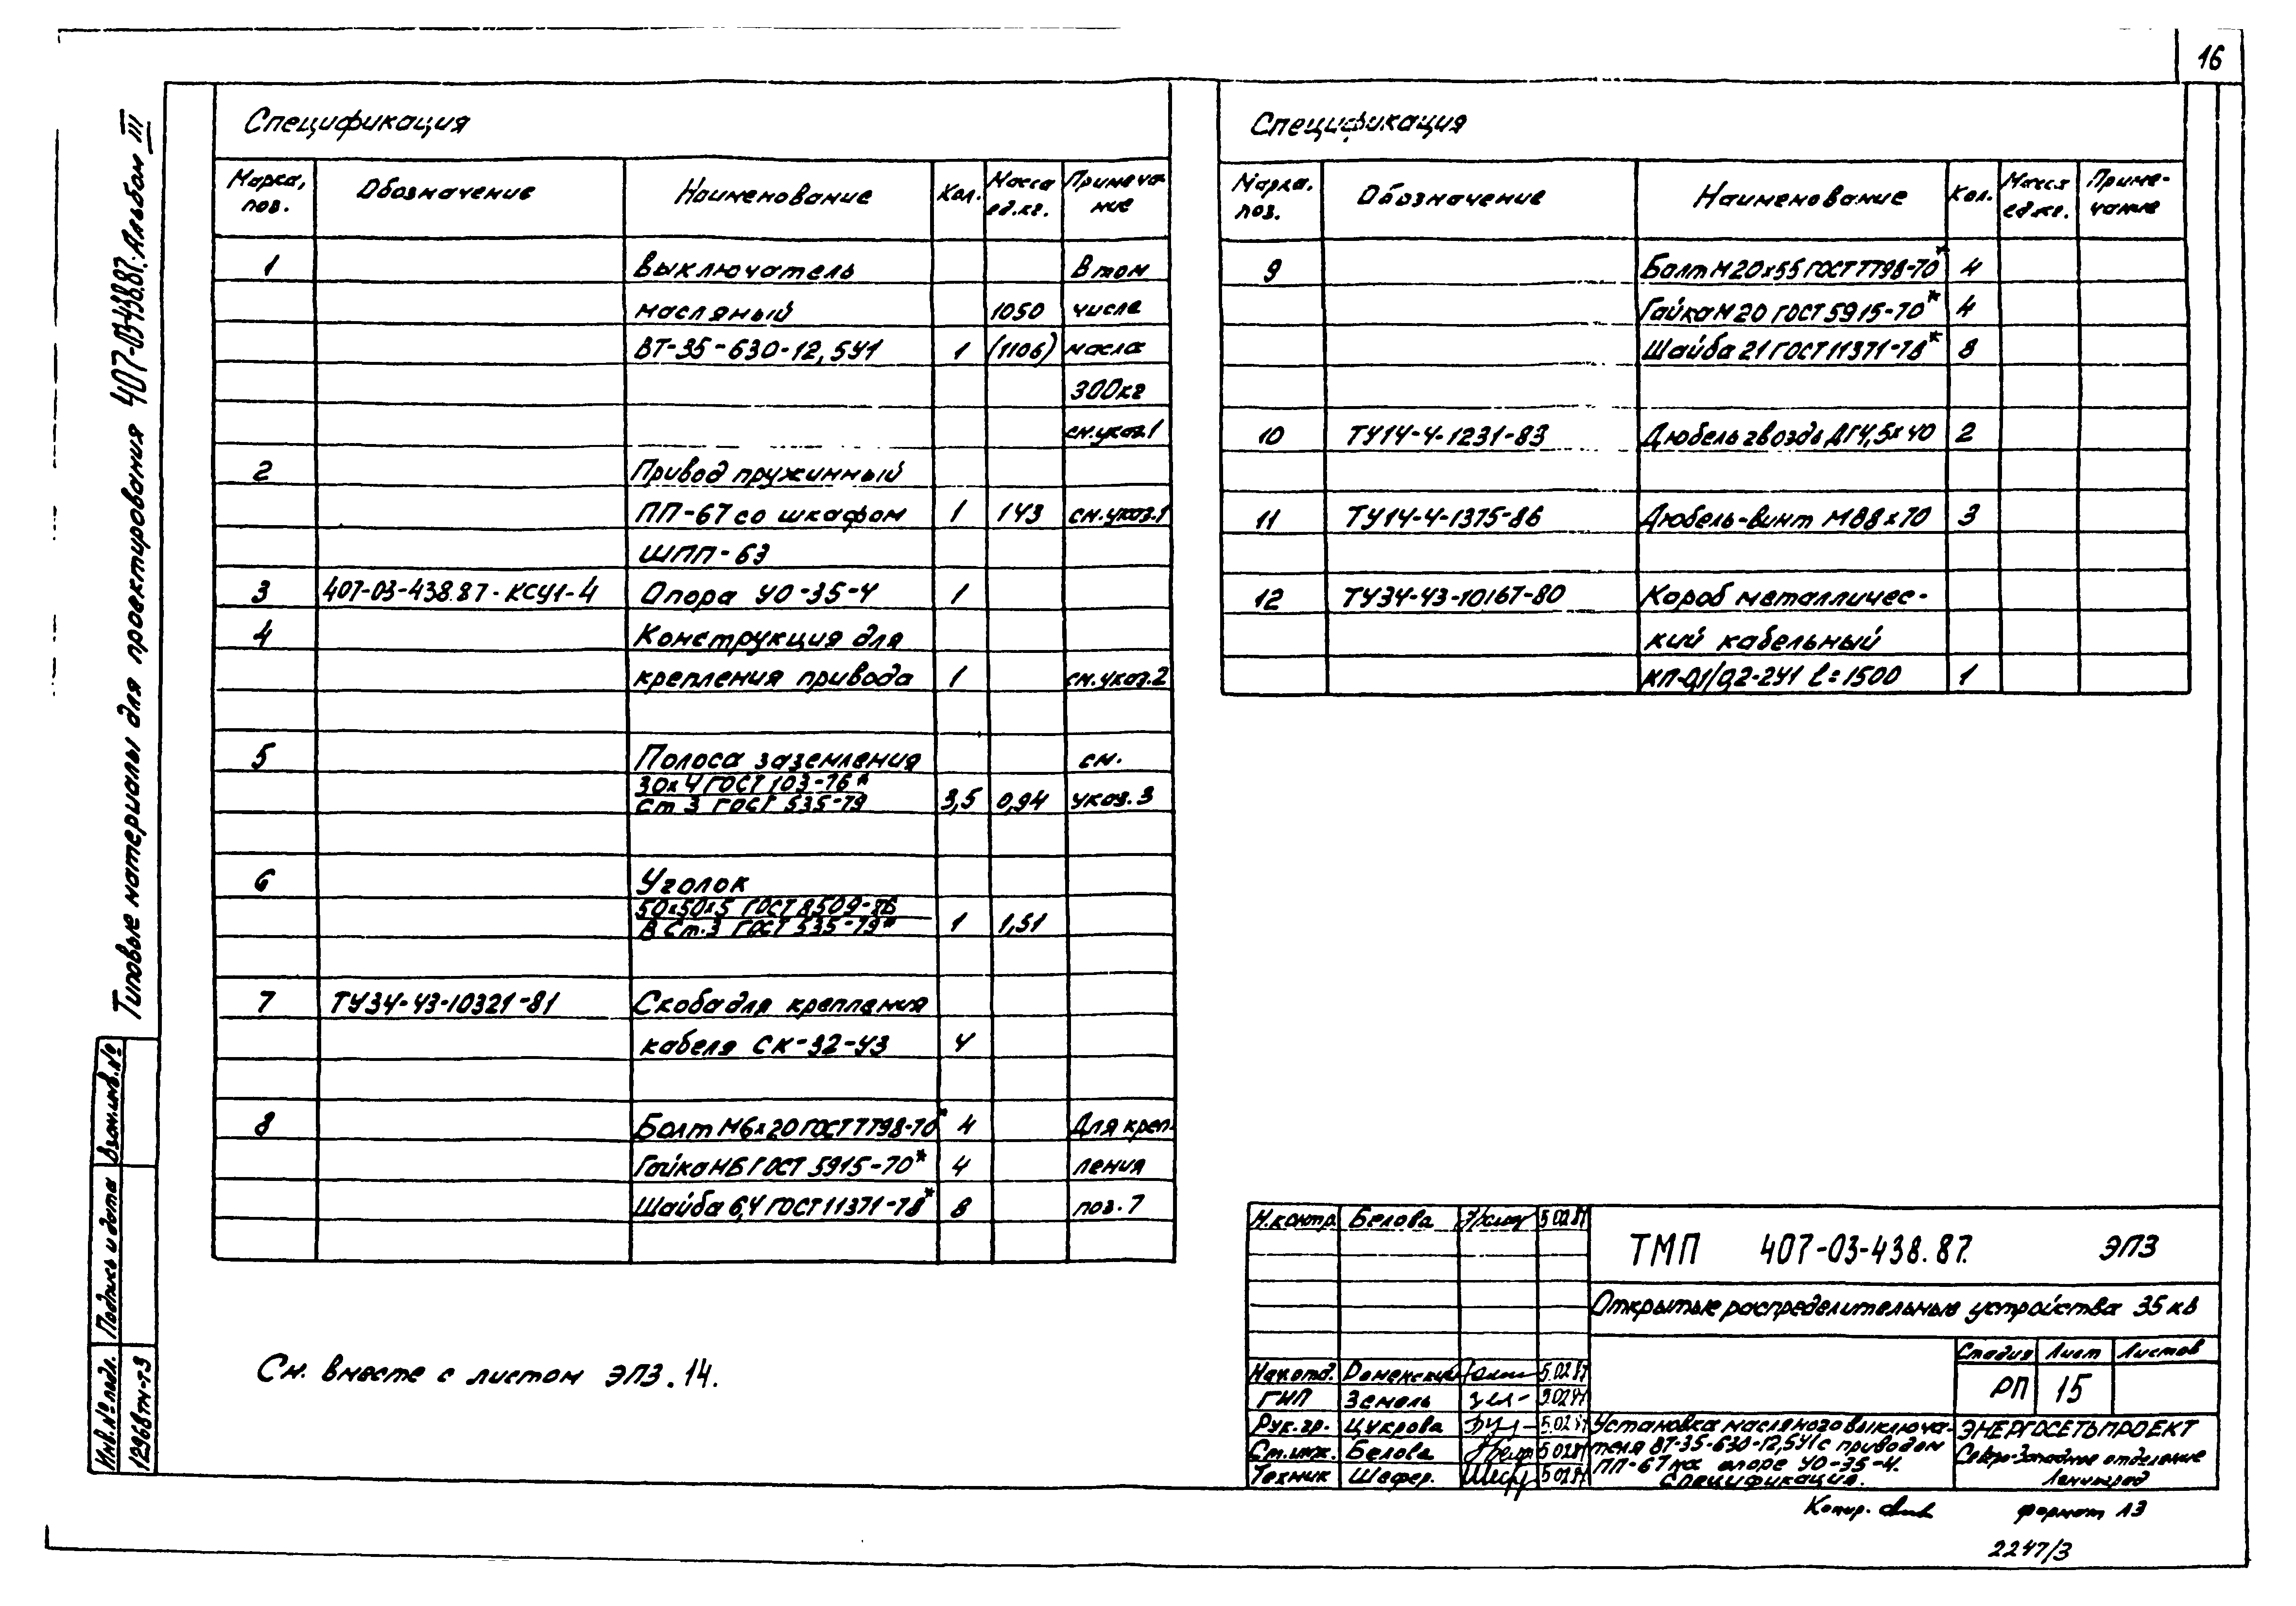 16
Типовые материалы для проектирования 407-03-438.87. Альбом III
Спецификация
Марка, поз.
Обозначение
Наименование
Кол.
Масса ед.кг.
Примечание
1 Выключатель В том
масляный 1050 числе
ВТ-35-630-12,5У1 1 (1106) масла
300кг
см.указ.1
2 Привод пружинный
ПП-67 со шкафом 1 143 см.указ.1
ШПП-63
3 407-03-438.87-КСУ1-4 Опора УО-35-4 1
4 Конструкция для
крепления привода 1 см.указ.2
5 Полоса заземления см.
30х4 ГОСТ 103-76*
Ст 3 ГОСТ 535-79 3,5 0,94 указ.3
6 Уголок
50х50х5 ГОСТ 8509-76
В Ст.3 ГОСТ 535-79* 1 1,51
7 ТУ34-43-10321-81 Скоба для крепления
кабеля СК-32-У3 4
8 Болт М6х20 ГОСТ 7798-70* 4 Для креп-
Гайка М6 ГОСТ 5915-70* 4 ления
Шайба 6,4 ГОСТ 11371-78* 8 поз.7
Спецификация
Марка, поз.
Обозначение
Наименование
Кол.
Масса ед.кг.
Приме-чание
9 Болт М20х55 ГОСТ 7798-70* 4
Гайка М20 ГОСТ 5915-70* 4
Шайба 21 ГОСТ 11371-78* 8
10 ТУ14-4-1231-83 Дюбель гвоздь ДГ4,5х40 2
11 ТУ14-4-1375-86 Дюбель-винт М88х70 3
12 ТУ34-43-10167-80 Короб металличес-
кий кабельный
КП-0,1/0,2-2У1 ℓ=1500 1
См. вместе с листом ЭПЗ.14.
Взам.инв.№
Подпись и дата
Инв.№подл.
12968тм-т3
Н.контр. Белова 5.02.87
Нач.отд. Роменский 5.02.87
ГИП Земель 5.02.87
Рук.гр. Цукрова 5.02.87
Ст.инж. Белова 5.02.87
Техник Шефер. 5.02.87
ТМП 407-03-438.87. ЭПЗ
Открытые распределительные устройства 35 кв
Стадия Лист Листов
РП 15
Установка масляного выключа-
теля ВТ-35-630-12,5У1 с приводом
ПП-67 на опоре УО-35-4.
Спецификация.
ЭНЕРГОСЕТЬПРОЕКТ
Северо-Западное отделение
Ленинград
Копир.
формат А3
2247/3